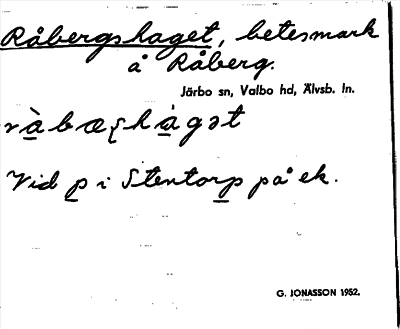 Råbergshaget, betesmark
å Råberg.
Järbo sn, Valbo hd, Älvsb. ln.
Vid p i Stentorp på ek.
G. JONASSON 1952.